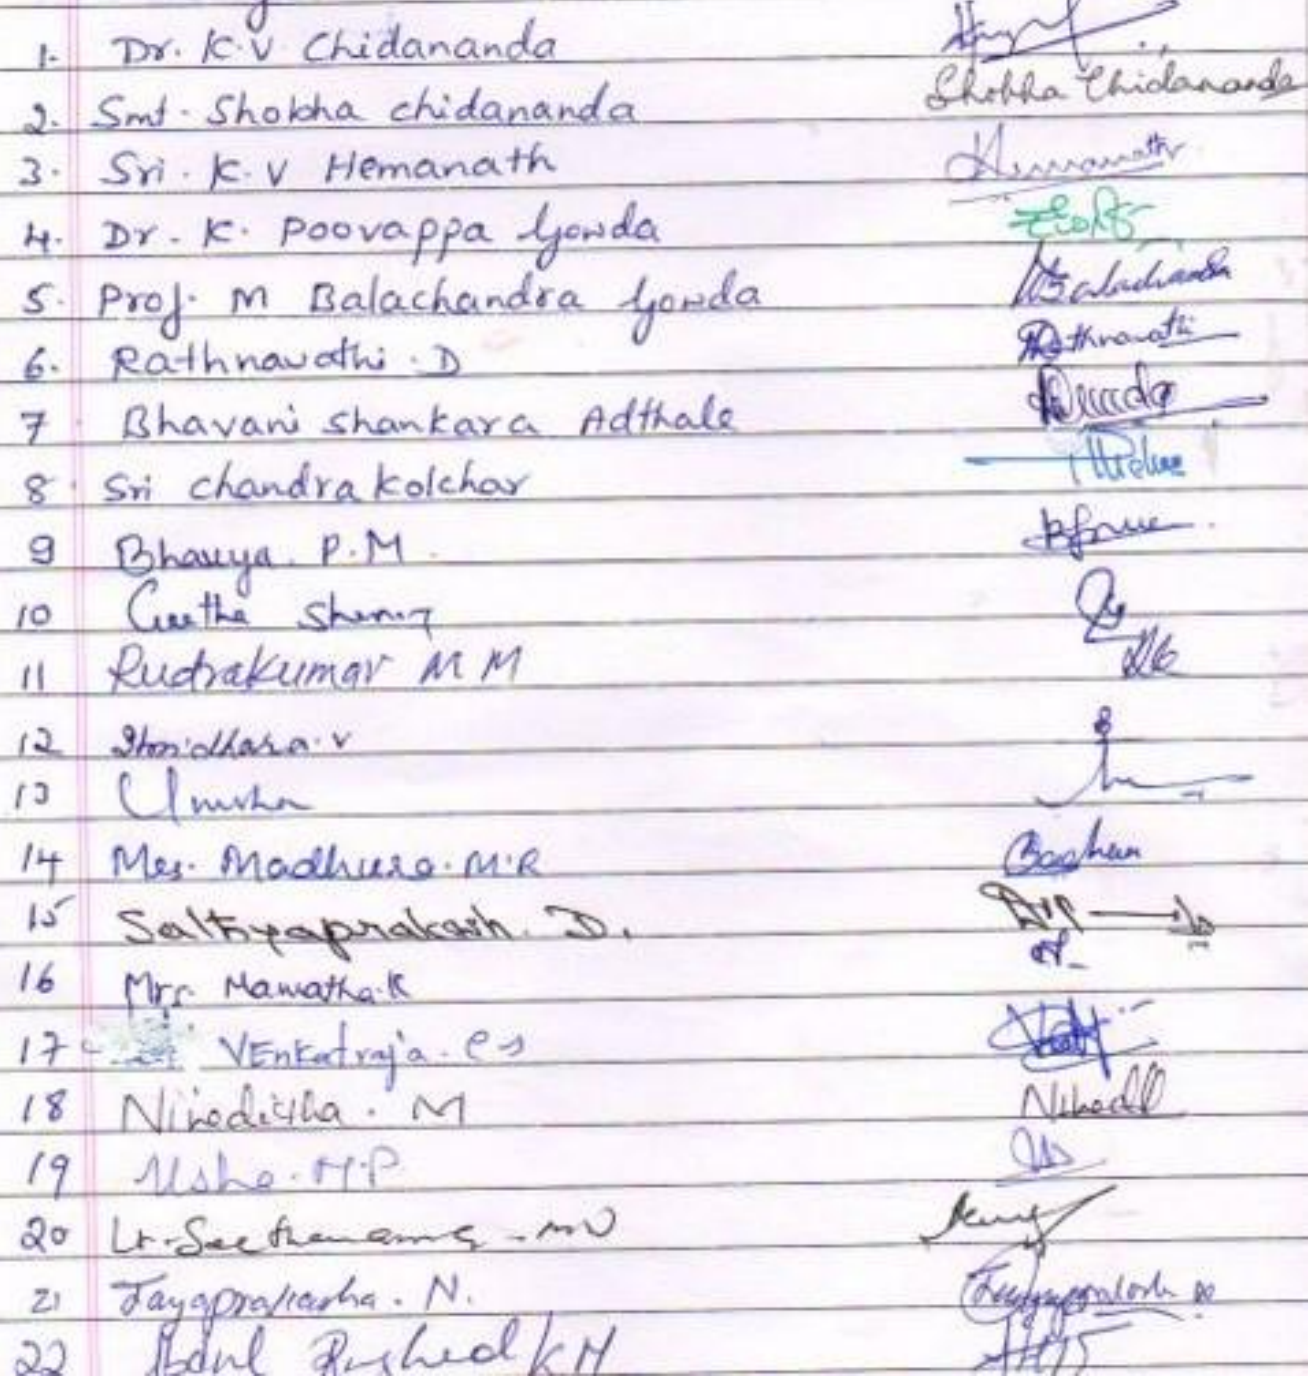 1. Dr. K.V Chidananda
Shobha Chidananda
2. Smt. Shobha chidananda
3. Sri. K.V Hemanath Hemanath
4. Dr. K. Poovappa Gowda
5. Prof. M Balachandra Gowda Balachandra
6. Rathnavathi. D Rathnavathi
7 Bhavani Shankara Adthale
8 Sri chandra Kolchar
9 Bhavya. P.M
10 Geetha Shenoy
11 Rudrakumar M M
12 Shridhara. V
13 Umesha
14 Mrs. Madhura. M.R
15 Sathyaprakash. D.
16 Mrs. Mamatha.K
17 VEnkatraja. C S
18 Niveditha. M
19 Usha. M.P
20 Lt. Seetharama
21 Jayaprakasha. N. Jayaprakash
22 Abdul Rasheed K M